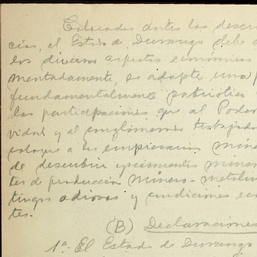 Colocados antes las descu
cias, el Estado de Durango deb
los diversos aspectos económicos
mentadamente, se adopte una p
fundamentalmente patriótica
las participaciones que al Poder
vidad y el conglomerado trabajado
coloque a los empresarios mine
de descubrir yacimientos miner
tes de producción minero-metalúr
tingos adversos y condiciones
tes.
(B) Declaraciones
1ª. El Estado de Durango